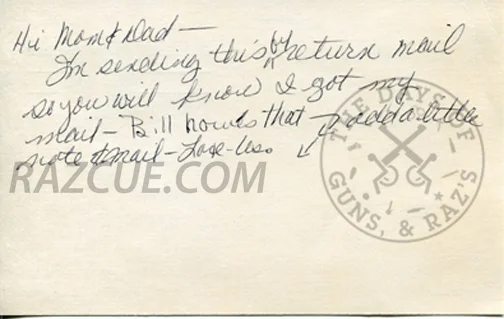 Hi Mom & Dad —
I'm sending this by return mail
so you will know I got my
mail — Bill that I add a little
note & mail — Love — Les
RAZCUE.COM
THE DAYS OF
GUNS, & RAZ'S